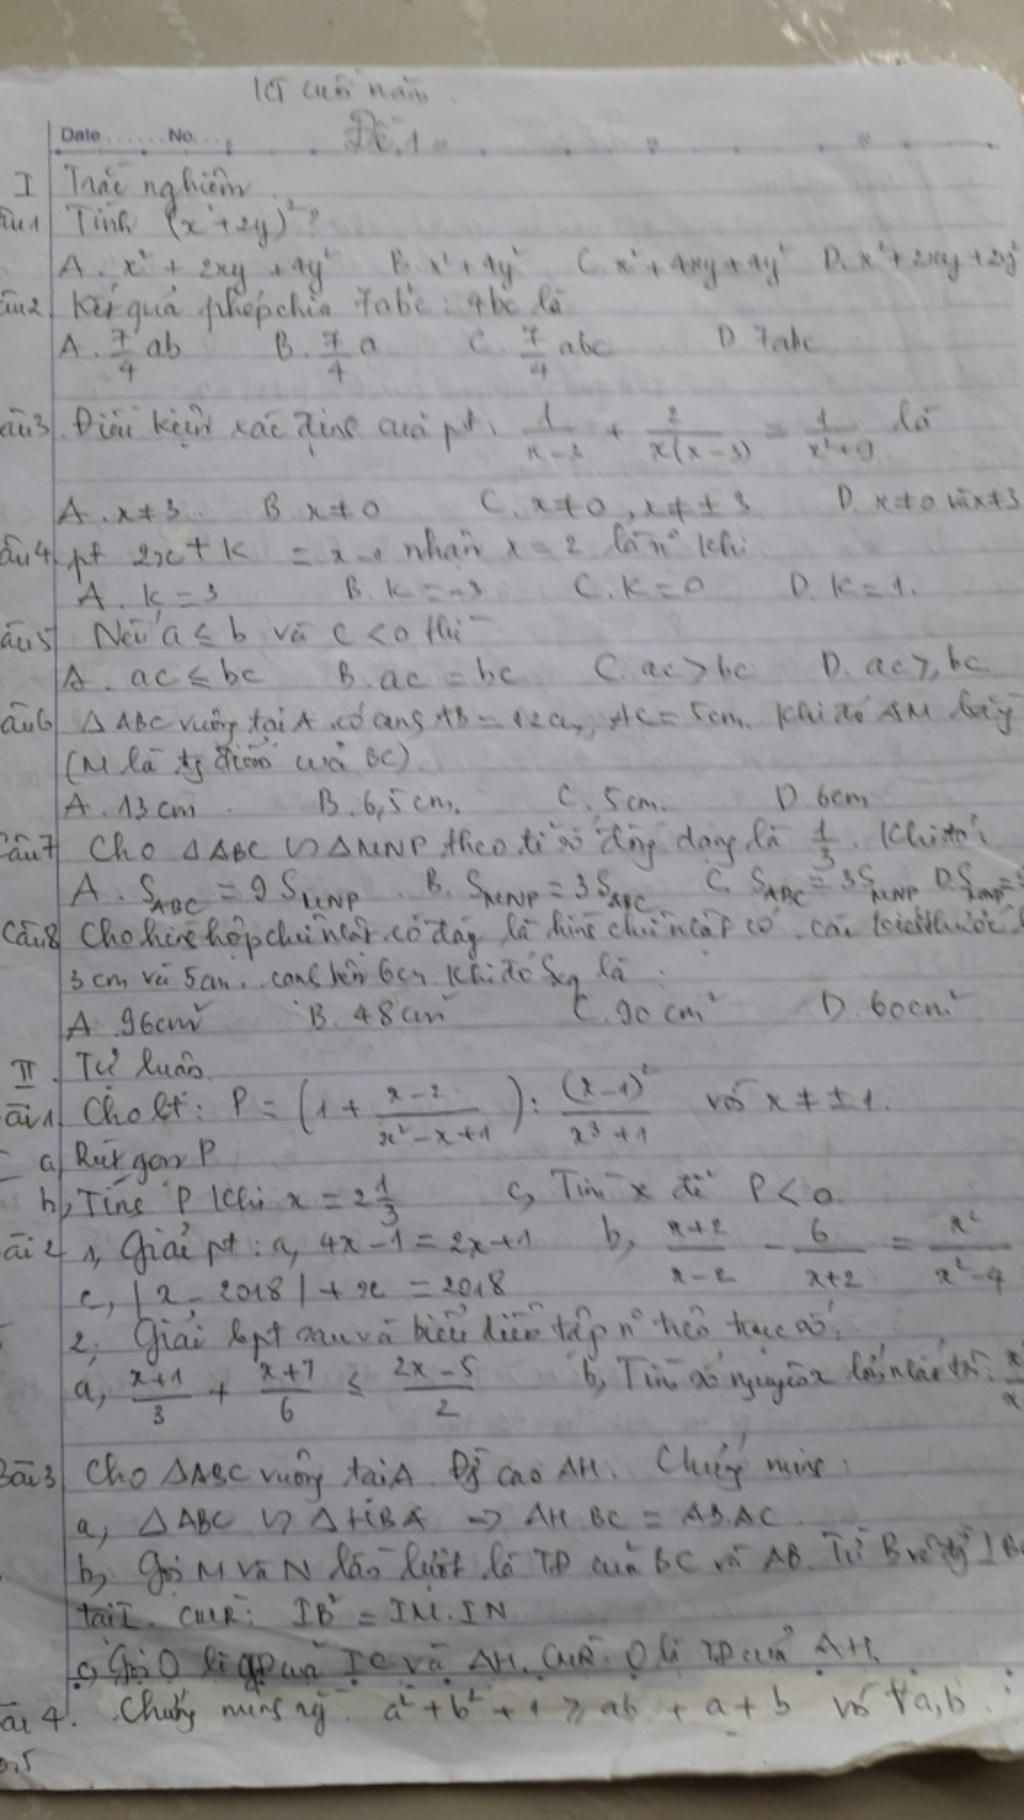 KT cuối năm
Date ...... No. ...
Đề 1
I Trắc nghiệm
Tính (x+2y)²?
A. x² + 2xy + 4y² B. x²+4y² C. x²+4xy+4y² D. x²+2xy+2y²
Kết quả phép chia : 4bc là
A. 7/4 ab B. 7/4 a C. 7/4 abc D. 7abc
Điều kiện xác định của pt: 1/(x-3) + 2/(x(x-3)) = 1/(x²+9) là
A. x≠3 B. x≠0 C. x≠0, x≠±3 D. x≠0 và x≠3
pt 2x + k = x-1 nhận x = 2 là n⁰ khi
A. k=3 B. k=-3 C. k=0 D. k=1.
Nếu a ≤ b và c < 0 thì
A. ac ≤ bc B. ac = bc C. ac > bc D. ac ≥ bc
Δ ABC vuông tại A có cạnh AB = 12cm, AC = 5cm. Khi đó AM bằng
(M là tg điểm của BC)
A. 13cm B. 6,5cm. C. 5cm. D. 6cm
Câu7 Cho ΔABC ∽ ΔMNP theo tỉ số đồng dạng là 1/3. Khi đó:
A. S_ABC = 9 S_MNP B. S_MNP = 3S_ABC C. S_ABC = 3S_MNP D. S_MNP =
Câu8 Cho hình hộp chữ nhật có đáy là hình chữ nhật có các kích thước
3cm và 5cm. cạnh bên 6cm. Khi đó Sxq là
A. 96cm² B. 48cm² C. 90cm² D. 60cm²
II. Tự luận
Cho bt: P = (1 + (x-2)/(x²-x+1)) : (x-1)²/(x³+1) với x ≠ ±1.
a, Rút gọn P
b, Tính P khi x = 2 1/3 c, Tìm x để P < 0
1, Giải pt: a, 4x-1 = 2x+1 b, (x+2)/(x-2) - 6/(x+2) = x²/(x²-4)
c, |x - 2018| + x = 2018
2, Giải bpt sau và biểu diễn tập n⁰ trên trục số:
a, (x+1)/3 + (x+7)/6 ≤ (2x-5)/2 b, Tìm số nguyên x lớn nhất
Bài3 Cho ΔABC vuông tại A. Đg cao AH. Chứng minh:
a, ΔABC ∽ ΔHBA => AH.BC = AB.AC
b, Gọi M và N lần lượt là TĐ của BC và AB. Từ B vẽ đg ⊥ BC
tại I. CMR: IB² = IM.IN
c, Gọi O là gđ của IC và AH. CMR: O là TĐ của AH.
Chứng minh rg a²+b²+1 ≥ ab + a + b với ∀a,b